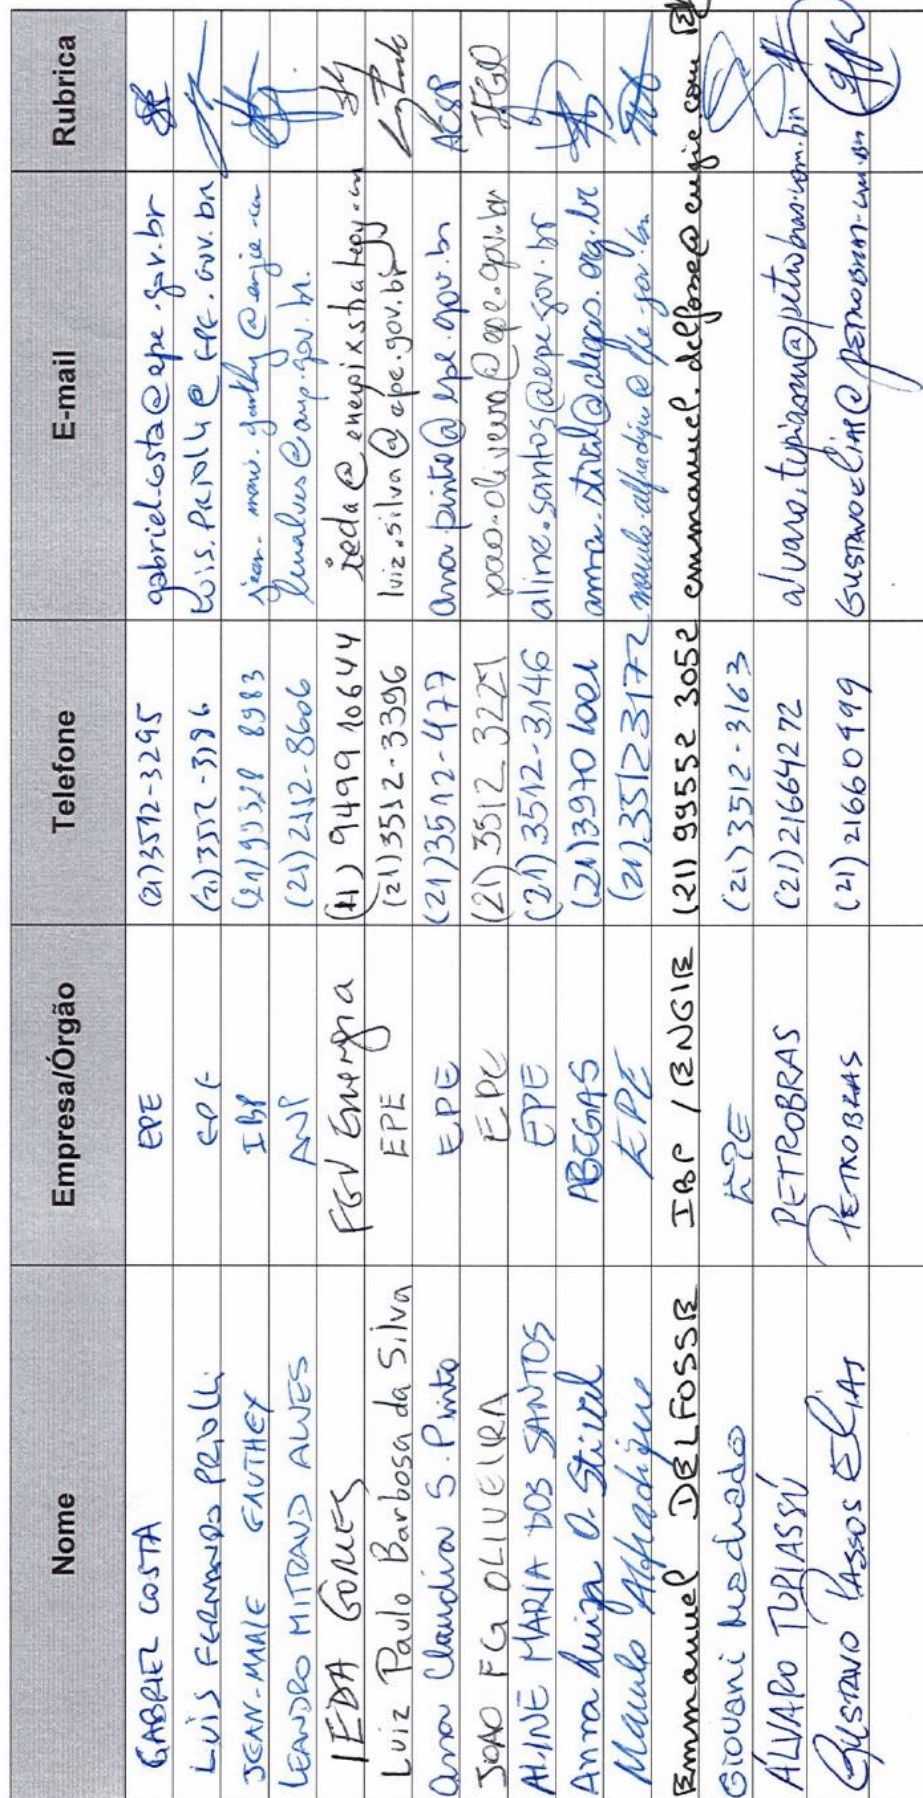 Nome Empresa/Órgão Telefone E-mail Rubrica
GABRIEL COSTA EPE (21)3512-3295 gabriel.costa@epe.gov.br
LUÍS FERNANDO PRIOLLI EPE (21)3512-3196 LUIS.PRIOLLI@EPE.GOV.BR
JEAN-MARC GAUTHEY IBP (21)99328 8983
LEANDRO MITRAND ALVES ANP (21)2112-8606 lmalves@anp.gov.br.
IEDA GOMES FGV Energia (11) 9499 10644
Luiz Paulo Barbosa da Silva EPE (21)3512-3396 luiz.silva@epe.gov.br
Ana Claudia S. Pinto EPE (21)3512-477 ana.pinto@epe.gov.br ACSP
JOAO FG OLIVEIRA EPE (21)3512 3227 joao.oliveira@epe.gov.br JFGO
ALINE MARIA DOS SANTOS EPE (21)3512-3146 aline.santos@epe.gov.br
Anna Luiza O. Stival ABEGAS (21)3970 1001
EPE (21)3512 3172
Emmanuel DELFOSSE IBP / ENGIE (21) 99552 3052 emmanuel.delfosse@engie.com
Giovani Machado EPE (21)3512-3163
ÁLVARO TUPIASSÚ PETROBRAS (21)21664272 alvaro.tupiassu@petrobras.com.br
GUSTAVO PASSOS ELIAS PETROBRAS (21)21660499